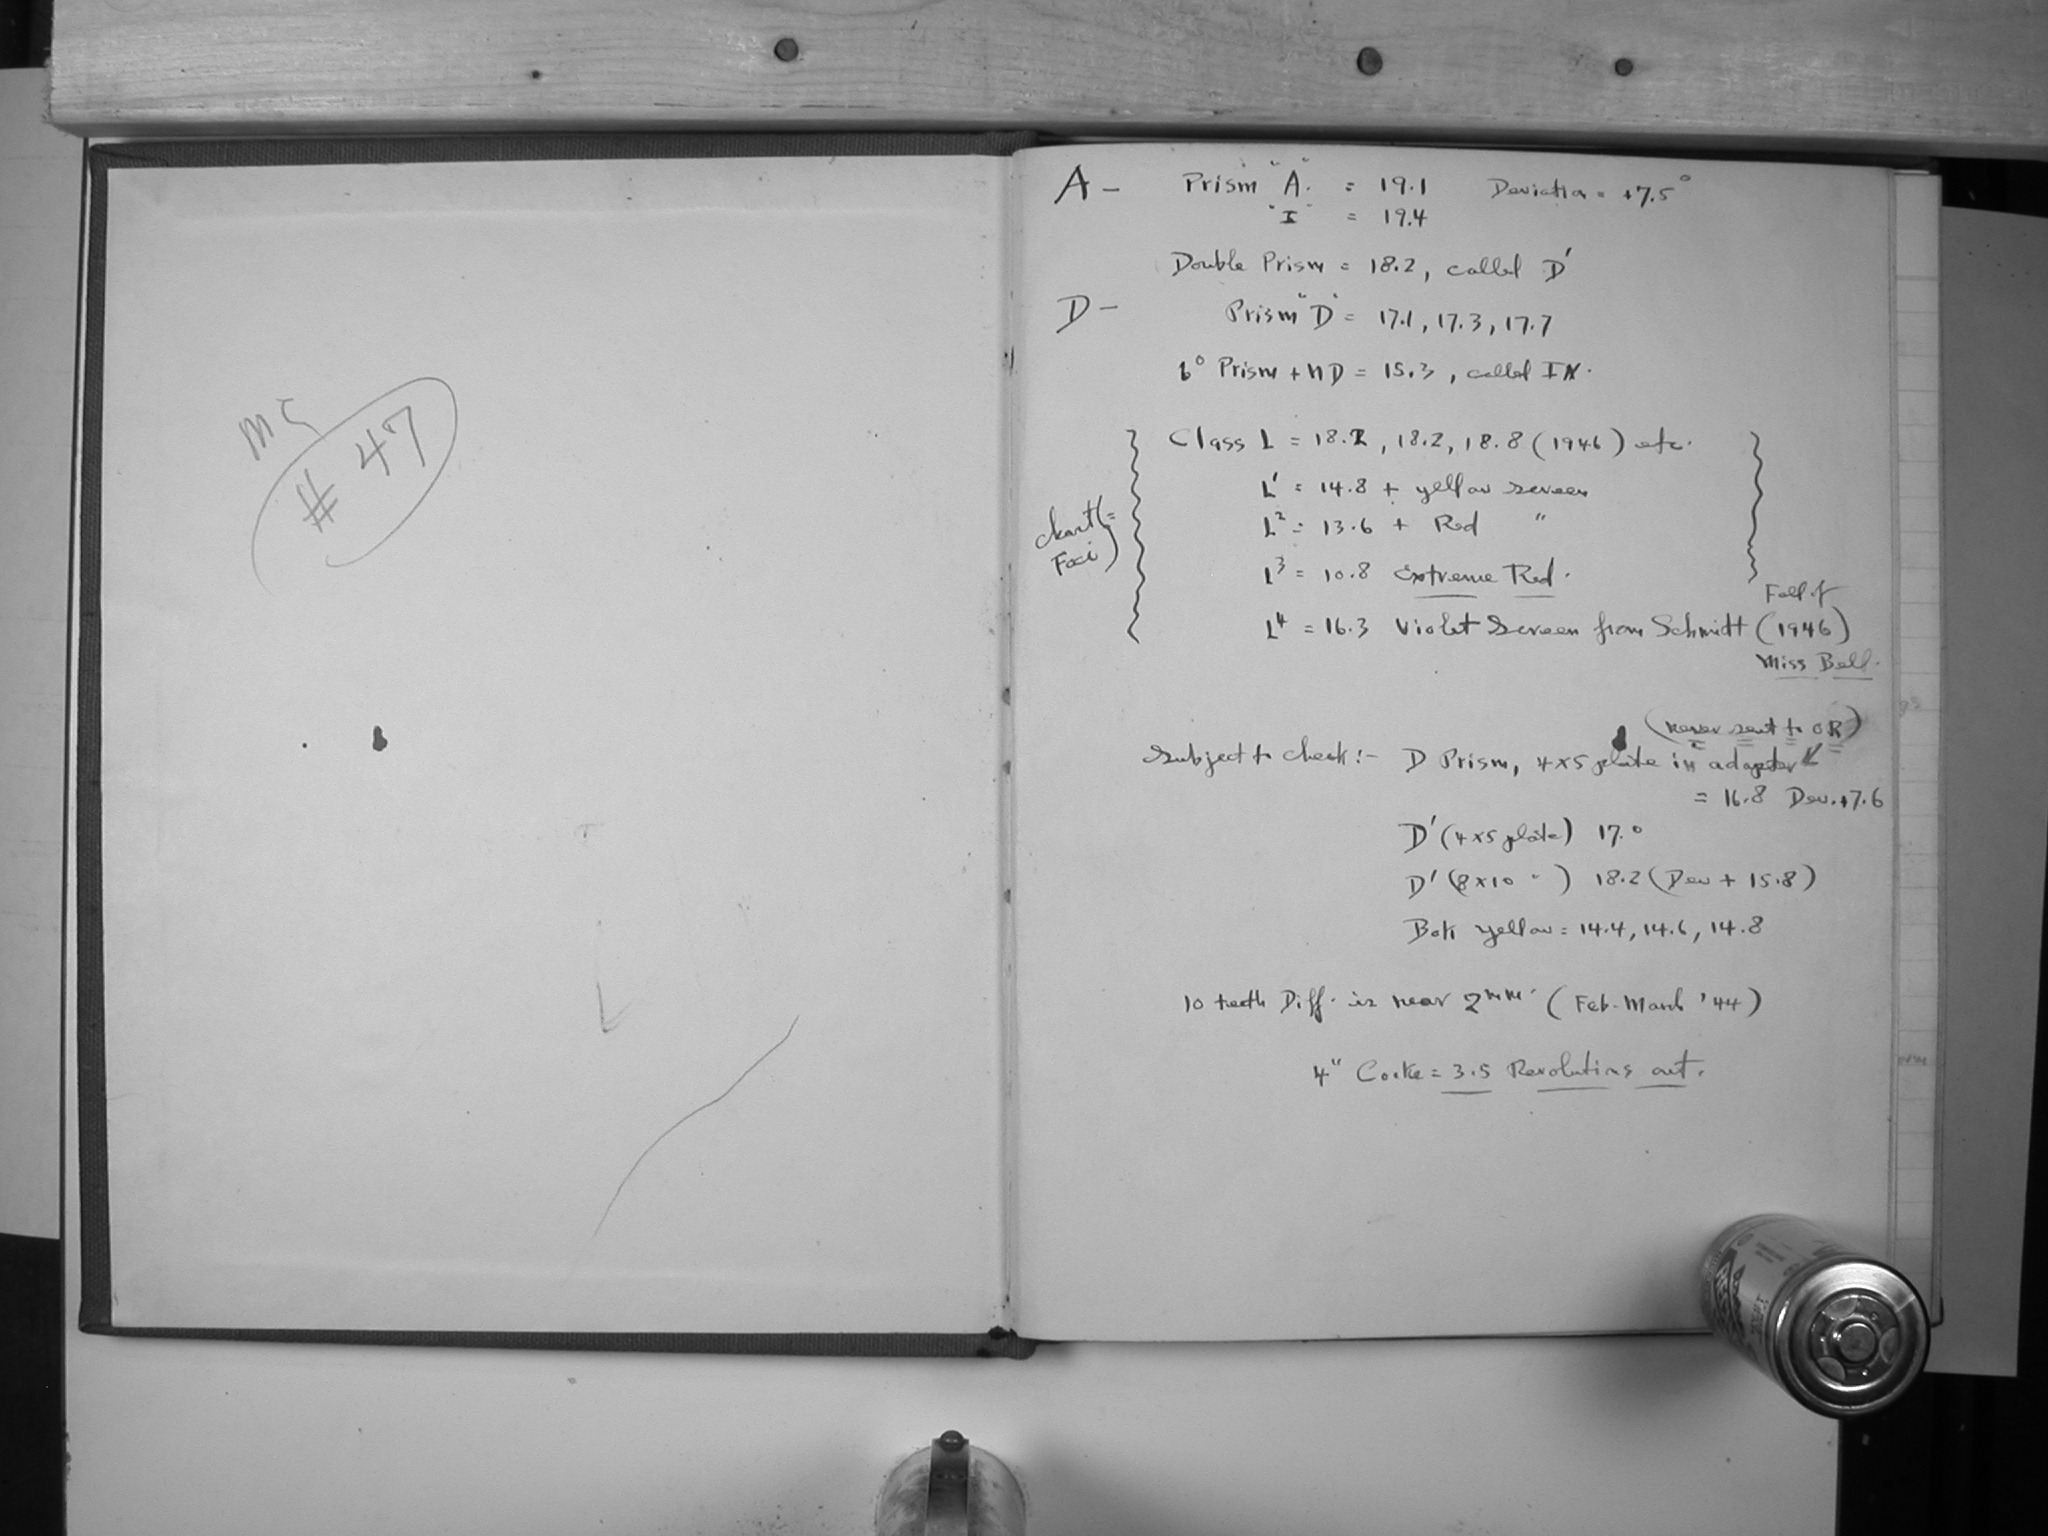 MC
# 47
A - Prism "A." = 19.1 Deviation = +7.5°
"I" = 19.4
Double Prism = 18.2, called D'
D - Prism "D" = 17.1, 17.3, 17.7
6° Prism + ND = 15.3, called IN.
Class L = 18.2, 18.2, 18.8 (1946) etc.
L' = 14.8 + yellow screen
L² = 13.6 + Red "
Foci)
L³ = 10.8 Extreme Red.
Fall of
L⁴ = 16.3 Violet Screen from Schmidt (1946)
Miss Bell.
(never sent to OR)
Subject to check:- D Prism, 4x5 plate in adapter
= 16.8 Dev. +7.6
D' (4x5 plate) 17.0
D' (8x10 " ) 18.2 (Dev + 15.8)
Bok yellow = 14.4, 14.6, 14.8
10 teeth Diff. is near 2mm. (Feb-March '44)
4" Cooke = 3.5 Revolutions out.